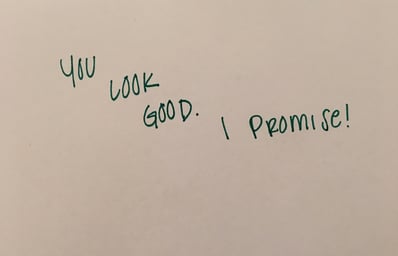 YOU
LOOK
GOOD.
I PROMISE!